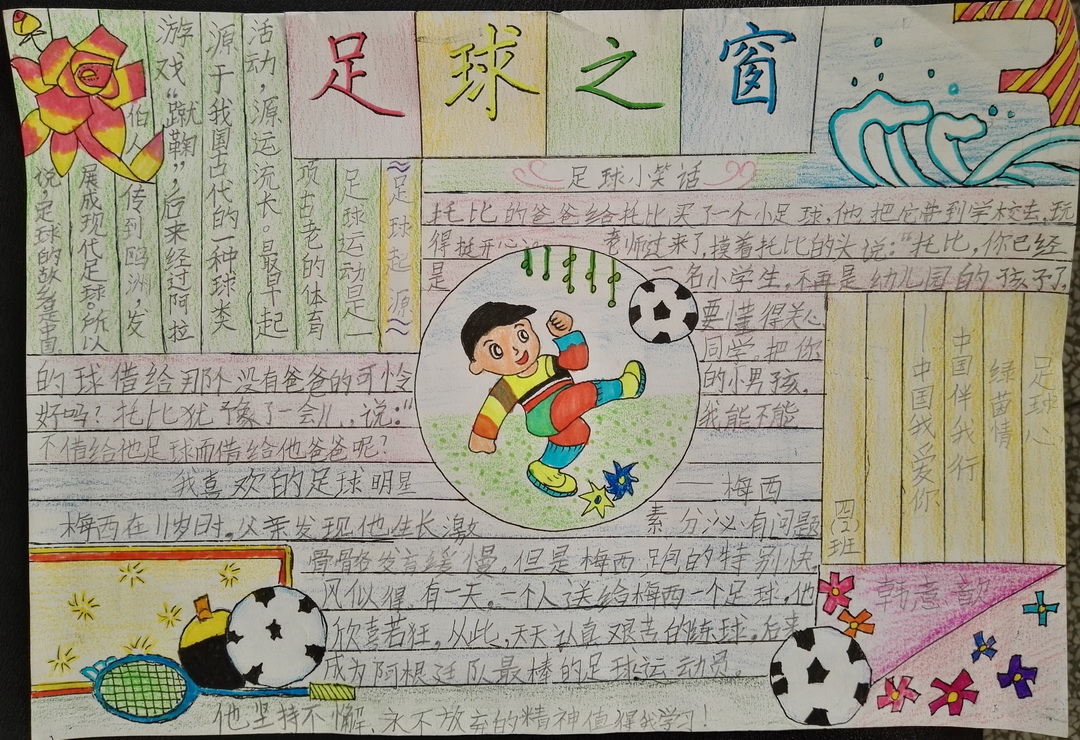 足球之窗
~足球起源~
足球运动是一
项古老的体育
活动，源运流长。最早起
源于我国古代的一种球类
游戏“蹴鞠”，后来经过阿拉
伯人传到欧洲，发
展成现代足球。所以
说，足球的故乡是中国。
足球小笑话
托比的爸爸给托比买了一个小足球，他把它带到学校去，玩
得挺开心。老师过来了，摸着托比的头说：“托比，你已经
是一名小学生，不再是幼儿园的孩子了，
要懂得关心
同学，把你
的球借给那个没有爸爸的可怜的小男孩，
好吗？托比犹豫了一会儿，说：“我能不能
不借给他足球而借给他爸爸呢？
我喜欢的足球明星——梅西
梅西在11岁时，父亲发现他生长激素分泌有问题
骨骼发育缓慢。但是梅西跑的特别快
风似得，有一天，一个人送给梅西一个足球，他
欣喜若狂，从此，天天认真艰苦的练球，后来
成为阿根廷队最棒的足球运动员。
他坚持不懈、永不放弃的精神值得我学习！
足球心
绿茵情
中国伴我行
——中国我爱你
四(2)班
韩意歆